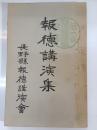 報德講演集
長野縣報德講演會